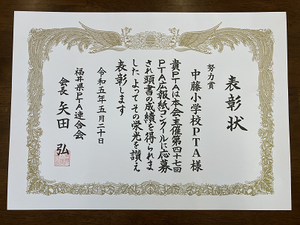 表彰状
努力賞
中藤小学校PTA様
貴PTAは本会主催第四十七回
PTA広報紙コンクールに応募
され頭書の成績を得られま
したよってその栄光を讃え
表彰します
令和五年五月二十日
福井県PTA連合会
会長 矢田 弘